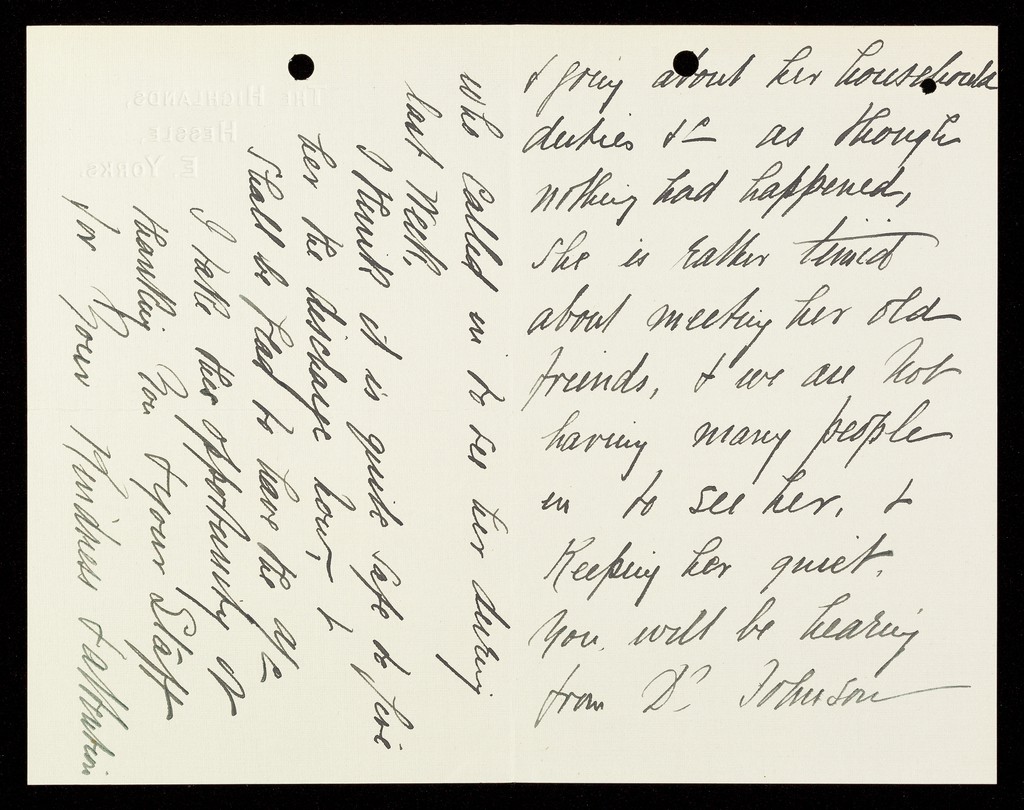 & going about her household
duties &c as though
nothing had happened,
She is rather timid
about meeting her old
friends, & we are not
having many people
in to see her, &
Keeping her quiet.
You will be hearing
from Dr Johnson
who Called in to see her during
last Week,
I think it is quite safe to give
her the discharge now, &
shall be glad to have the a/c
I take this opportunity of
thanking you & your Staff
for your Kindness & attention
THE HIGHLANDS,
HESSLE,
E. YORKS.